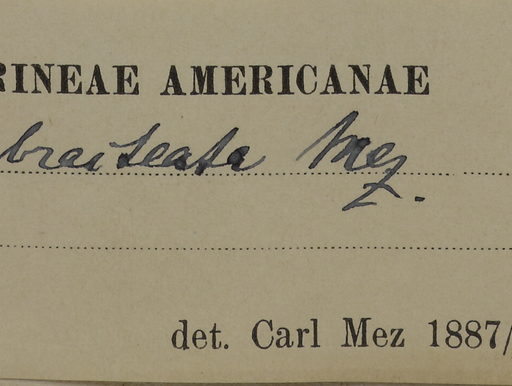 RINEAE AMERICANAE
bracteata Mez.
det. Carl Mez 1887/